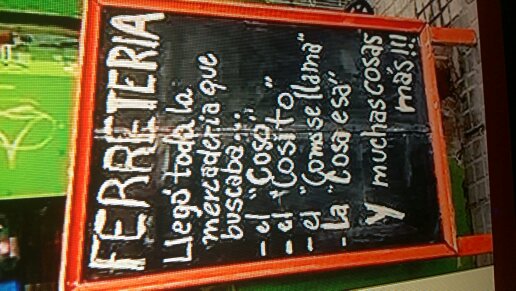 FERRETERIA
Llegó toda la
mercaderia que
buscaba...
- el "Coso"
- el "Cosito"
- el "Comose llama"
- La "Cosa esa"
Y muchas cosas
más!!!